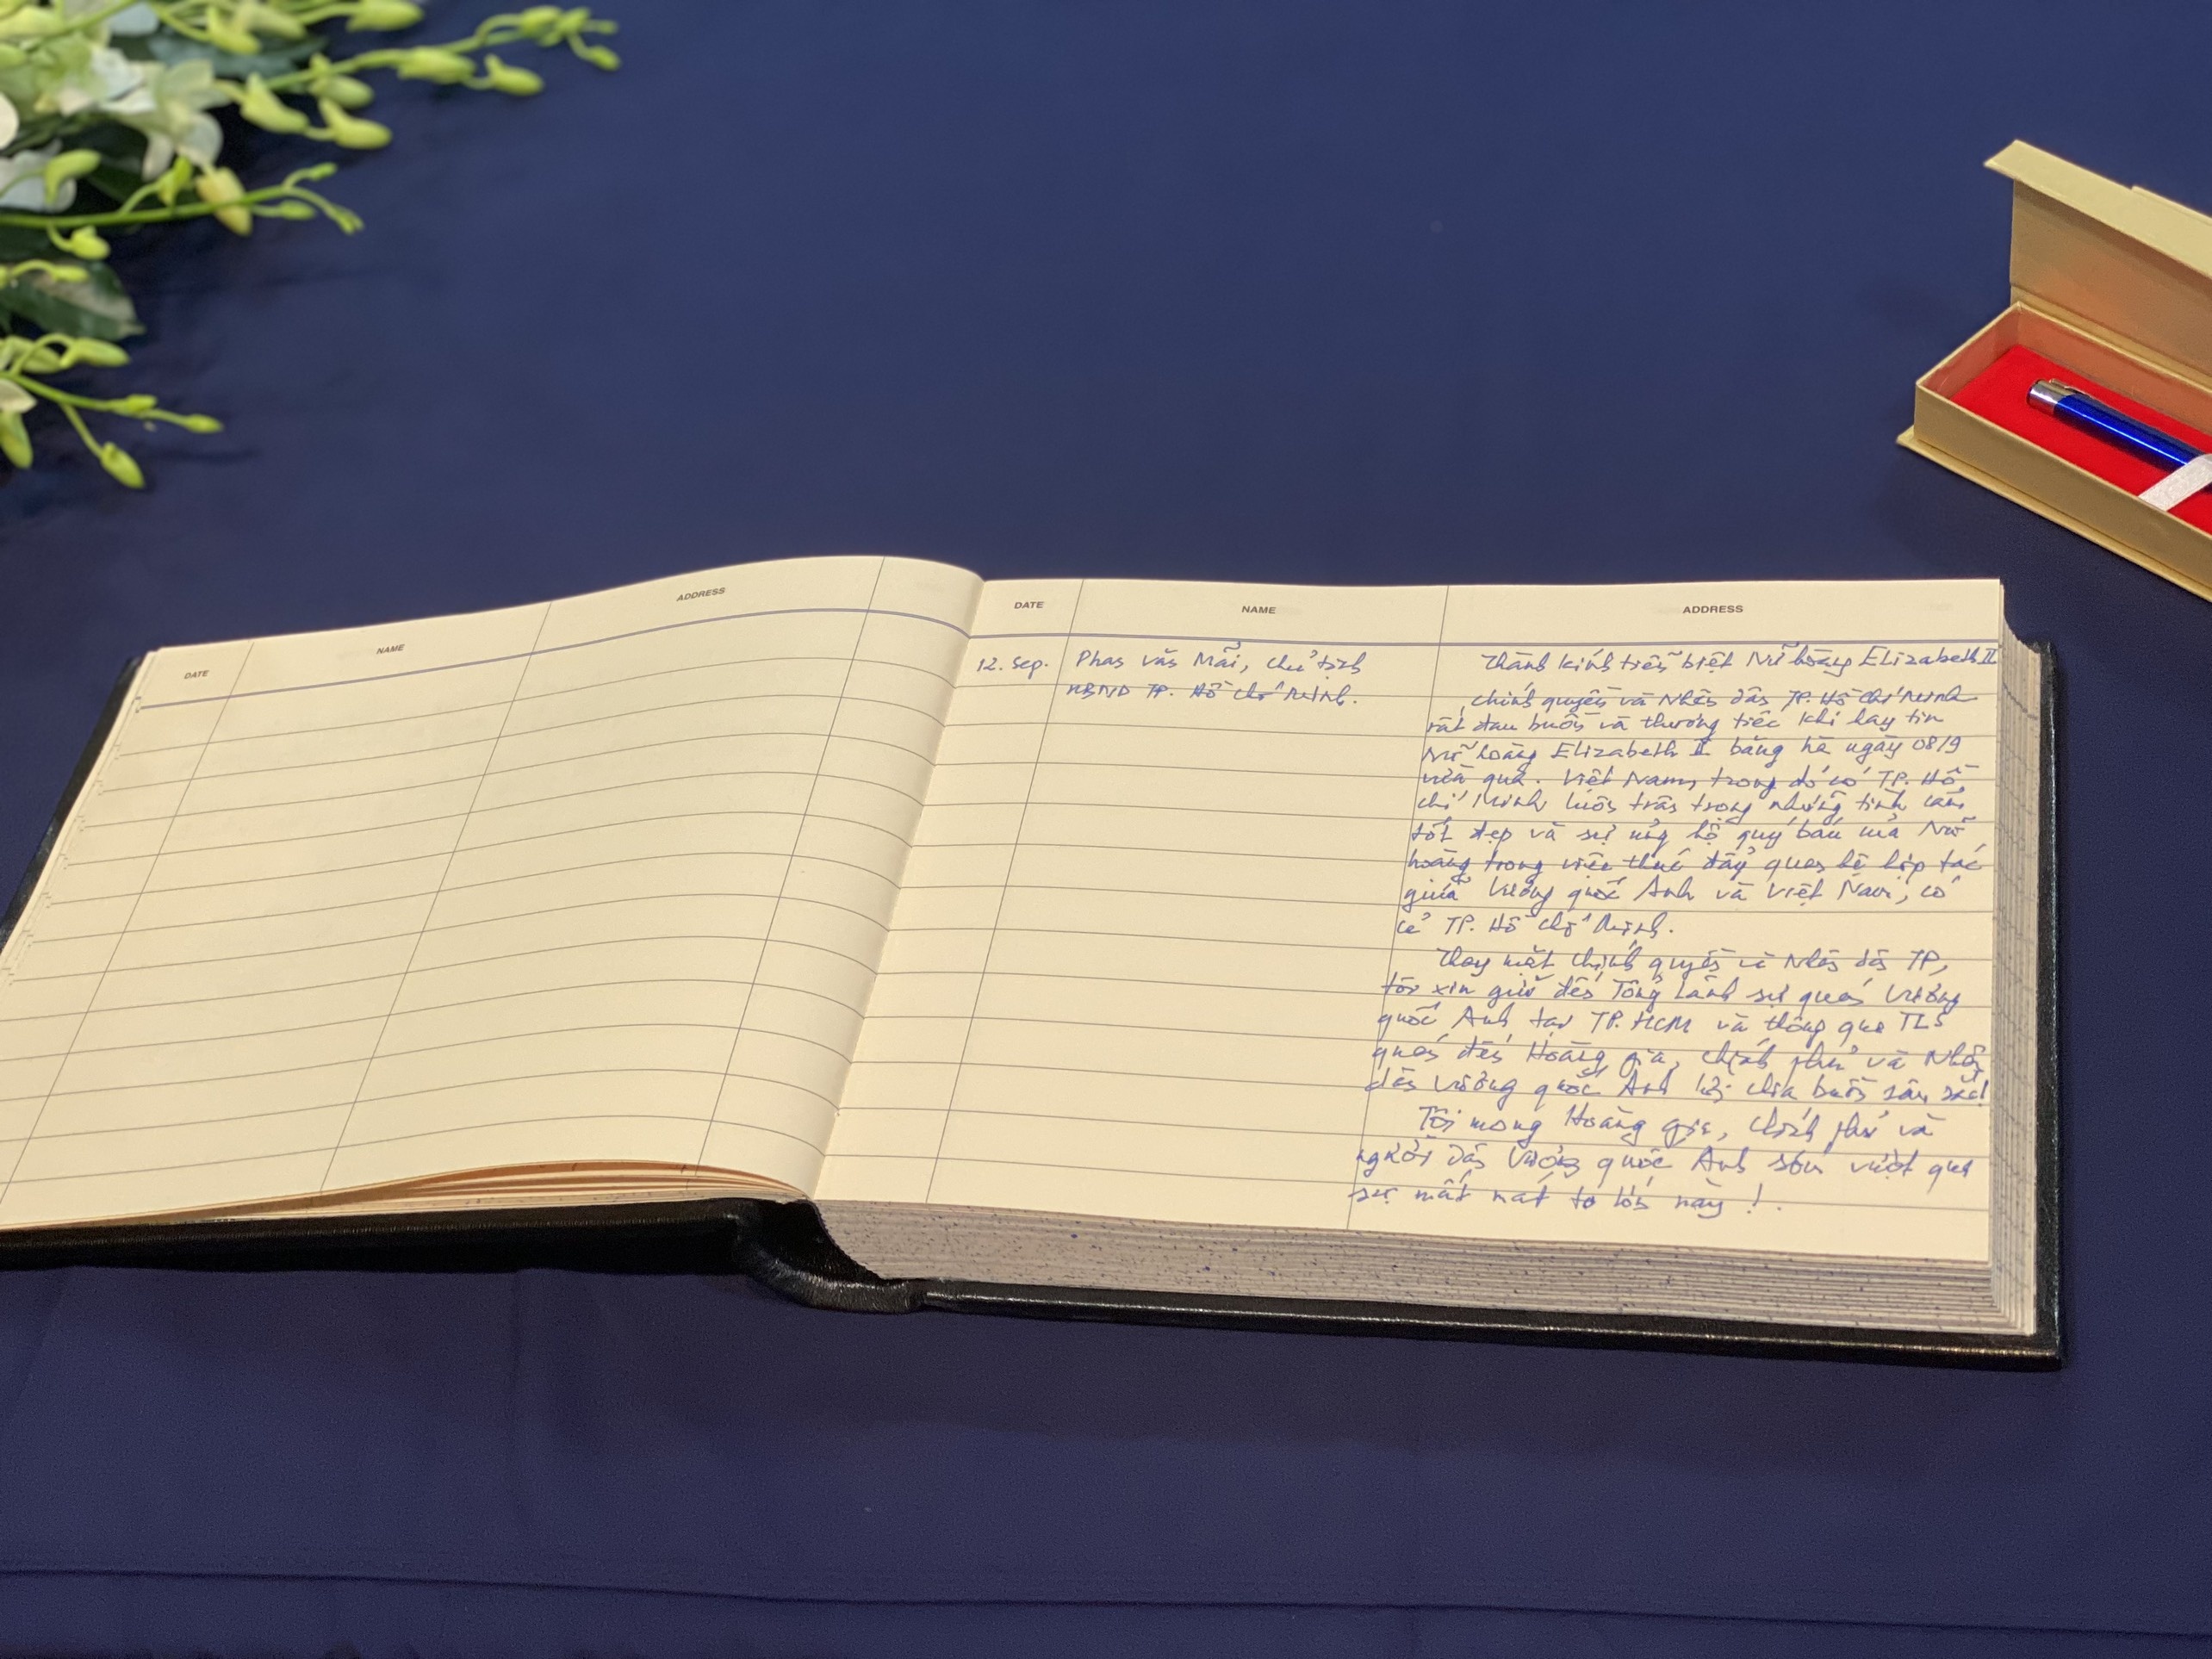 DATE
NAME
ADDRESS
DATE
NAME
ADDRESS
12. Sep.
Phan Văn Mãi, Chủ tịch
UBND TP. Hồ Chí Minh.
Thành kính tiễn biệt Nữ hoàng Elizabeth II
Chính quyền và Nhân dân TP. Hồ Chí Minh
rất đau buồn và thương tiếc khi hay tin
Nữ hoàng Elizabeth II băng hà ngày 08/9
vừa qua. Việt Nam, trong đó có TP. Hồ
Chí Minh luôn trân trọng những tình cảm
tốt đẹp và sự ủng hộ quý báu mà Nữ
hoàng trong việc thúc đẩy quan hệ hợp tác
giữa Vương quốc Anh và Việt Nam, có
cả TP. Hồ Chí Minh.
Thay mặt Chính quyền và Nhân dân TP,
tôi xin gửi đến Tổng Lãnh sự quán Vương
quốc Anh tại TP. HCM và thông qua TLS
quán đến Hoàng gia, Chính phủ và Nhân
dân Vương quốc Anh lời chia buồn sâu sắc!
Tôi mong Hoàng gia, Chính phủ và
người dân Vương quốc Anh sớm vượt qua
sự mất mát to lớn này !.